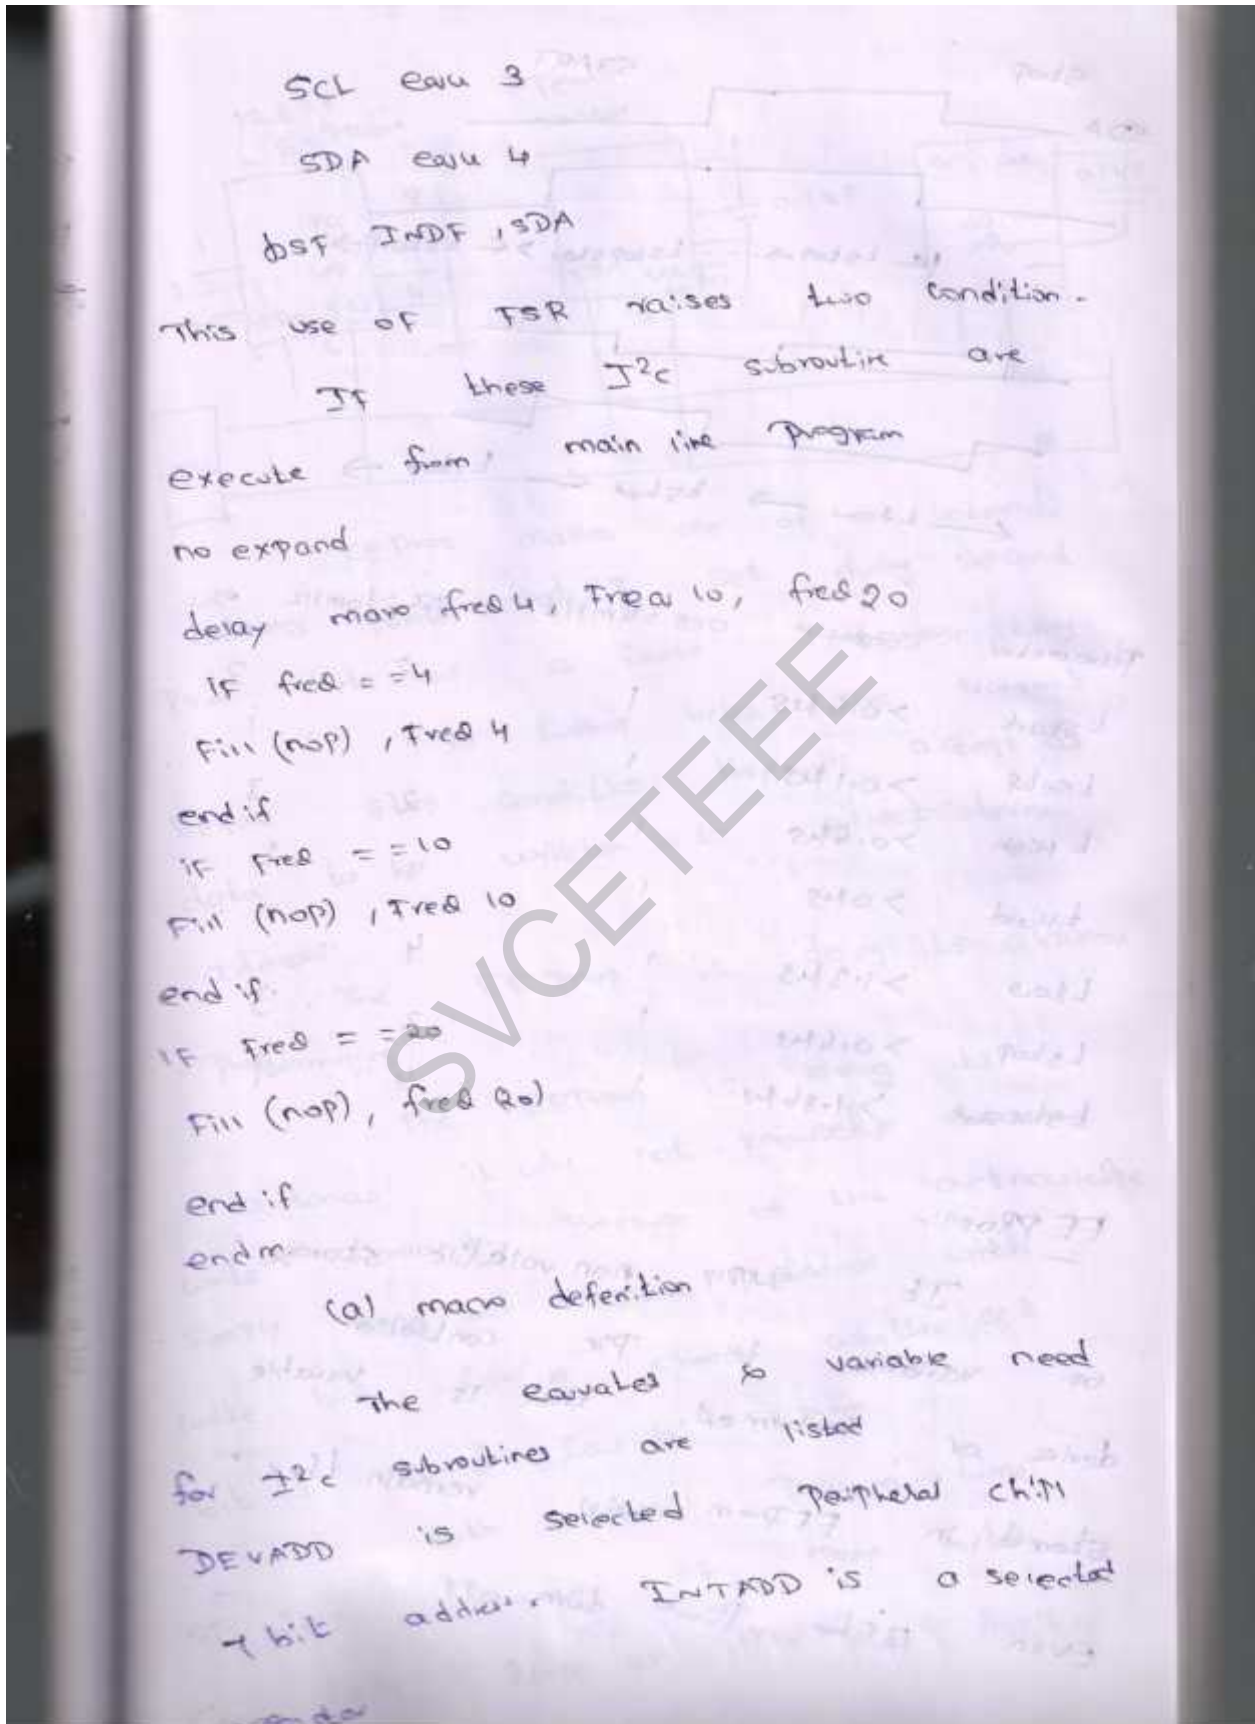 SCL equ 3
SDA equ 4
bsf INDF, SDA
This use of FSR raises two condition.
If these I²c subroutine are
execute from main line program
no expand
delay maro freq 4, Freq 10, freq 20
if freq = =4
Fill (nop), Freq 4
end if
if Freq = =10
Fill (nop), Freq 10
end if
if Freq = =20
Fill (nop), freq 20)
end if
endm
(a) macro defenition
The equates & variable need
for I²c subroutines are listed
DEVADD is selected peripheral chip
7 bit addres. INTADD is a selected
SVCETEEE